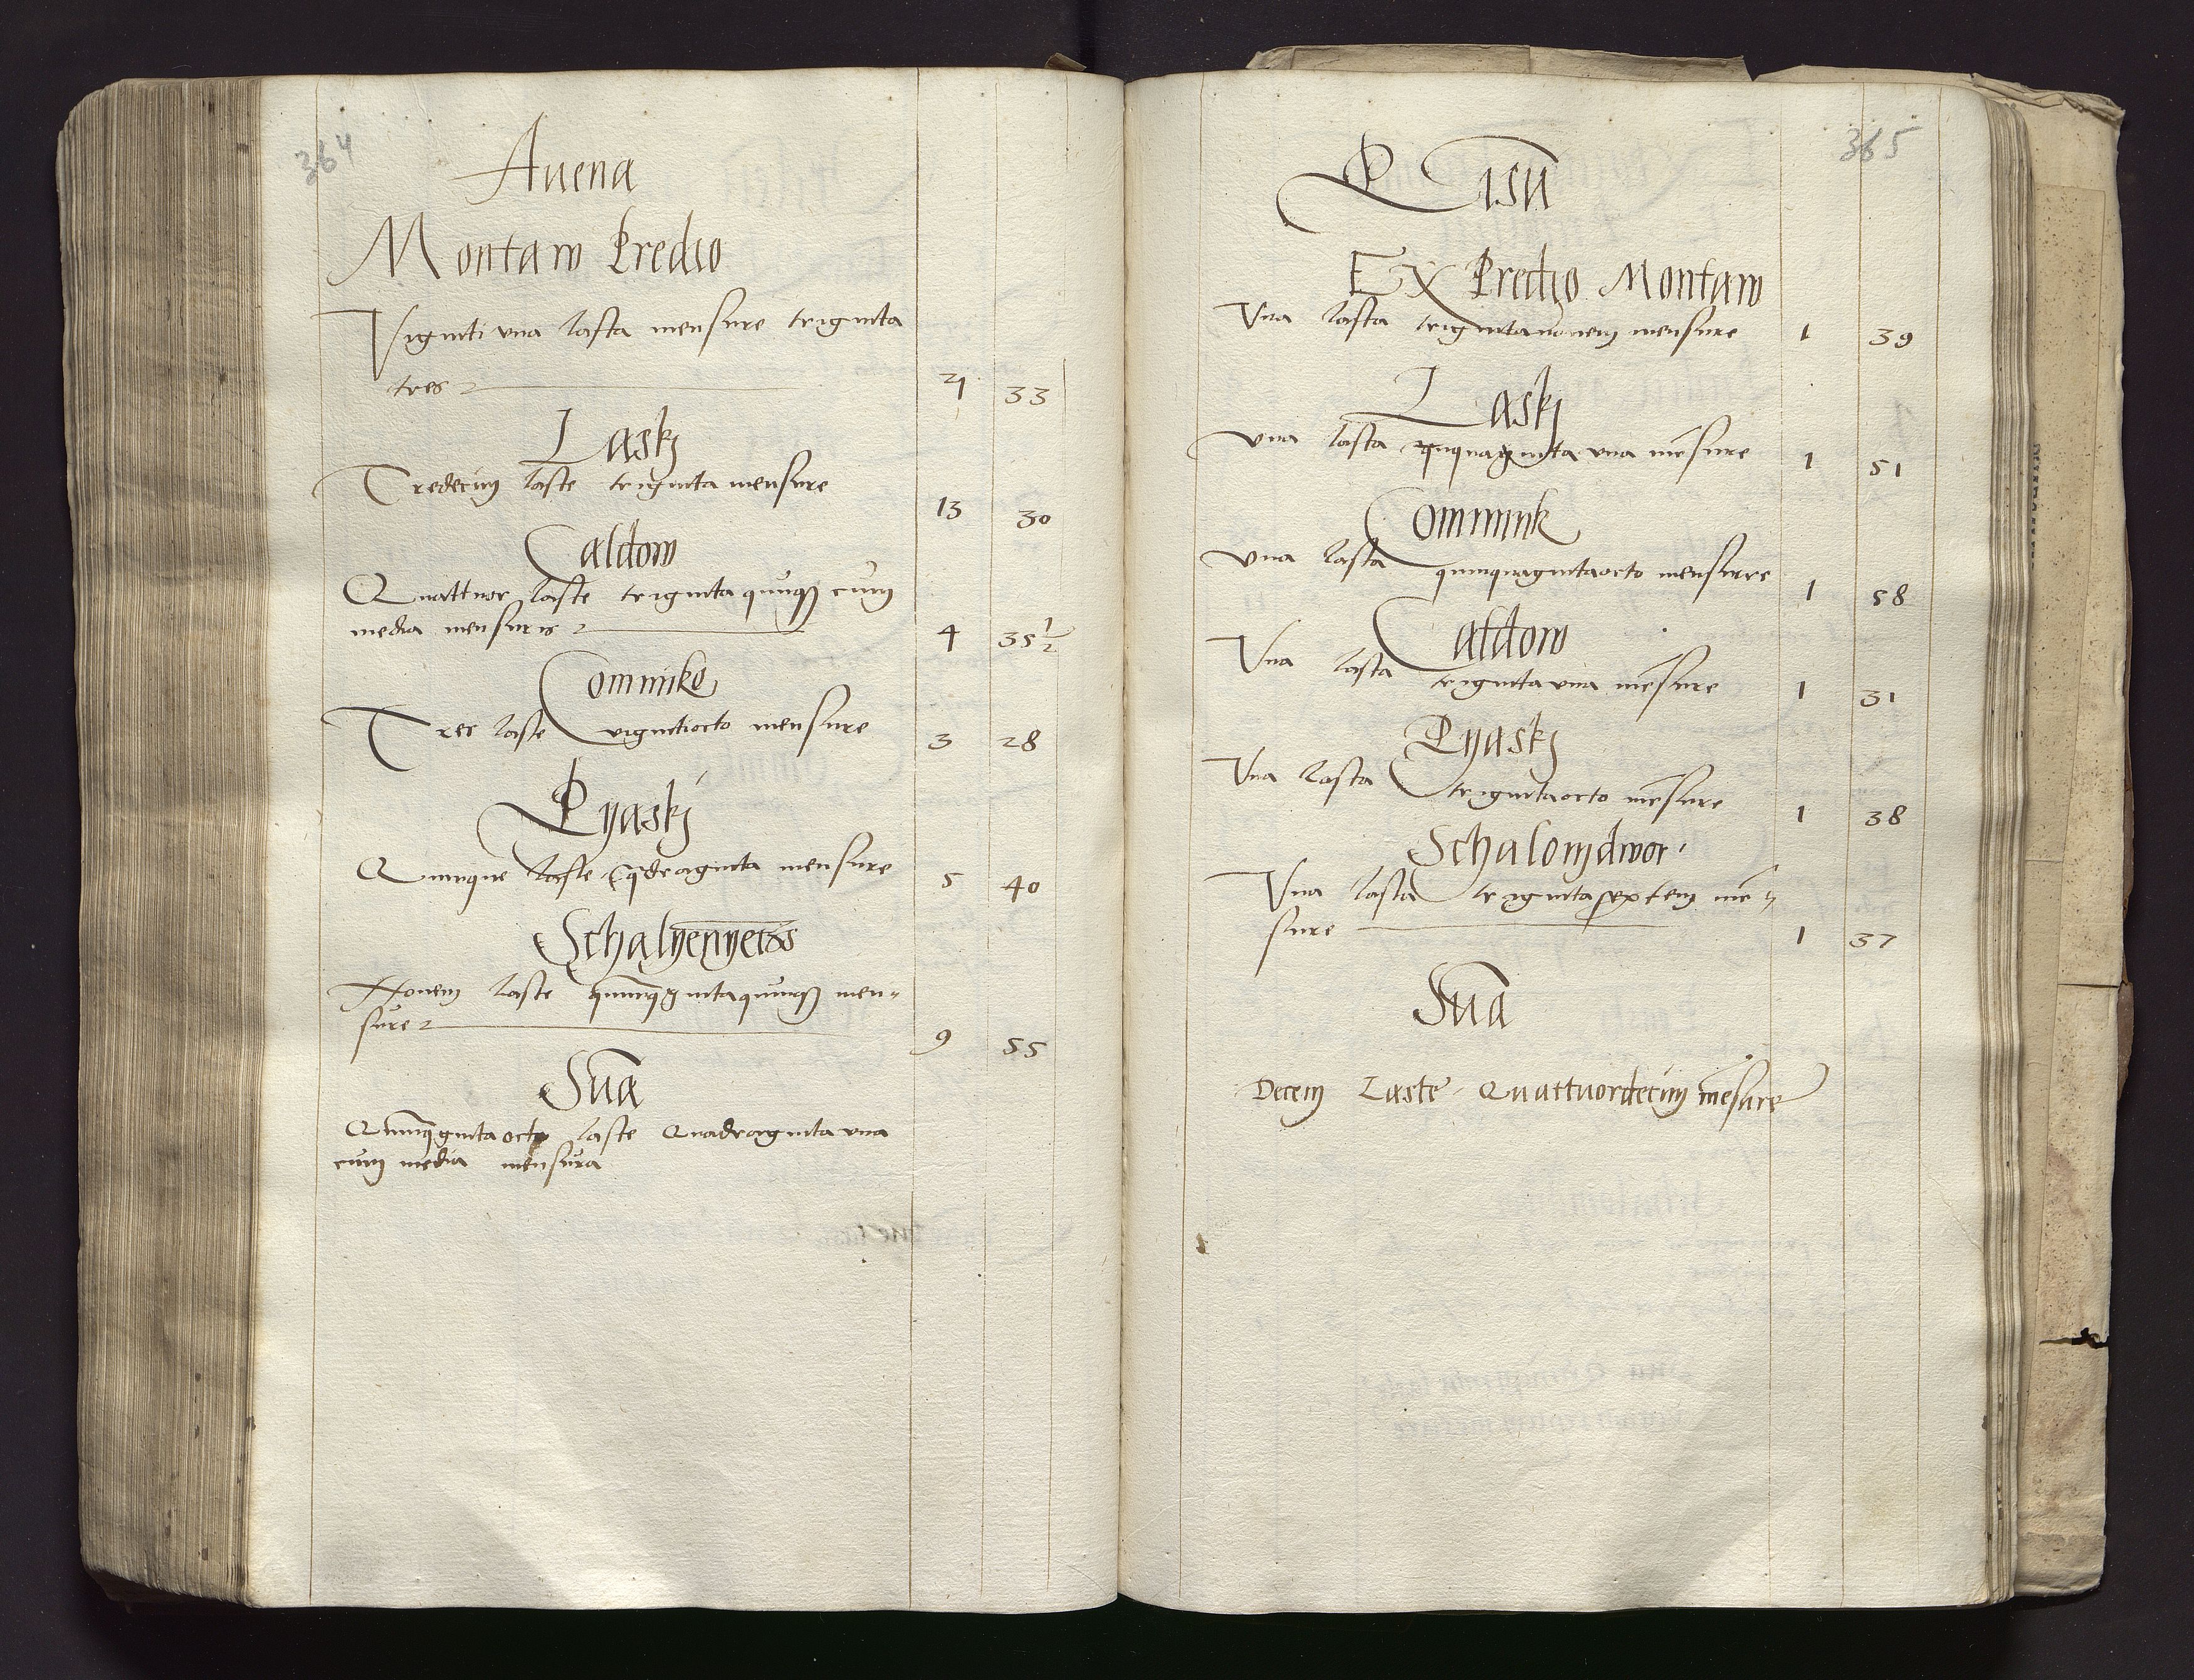 364
Auena
Montaw Predio
Viginti vna lasta mensure triginta
tres 21 33
Laskj
Tredecim laste triginta mensure 13 30
Caldow
Quattuor laste triginta quinqȝ cum
media mensuris 4 35 1/2
Commike
Tres laste vigintiocto mensure 3 28
Pyaskj
Quinque laste Qdraginta mensure 5 40
Nonem laste quinqginta quinqȝ men-
sure 9 55
Suma
Quinqginta octo laste Quadraginta vna
cum media mensura
365
Pisu
Ex Predio Montaw
Vna lasta triginta nouem mensure 1 39
Laskj
vna lasta quinquaginta vna mēsure 1 51
Commink
vna lasta quinquagintaocto mensure 1 58
Caldow
Vna lasta triginta vna mēsure 1 31
Pyaskj
Vna lasta trigintaocto mēsure 1 38
Schalowydwor
Vna lasta triginta septem mē-
sure 1 37
Suma
Decem Laste Quattuordecim mēsure